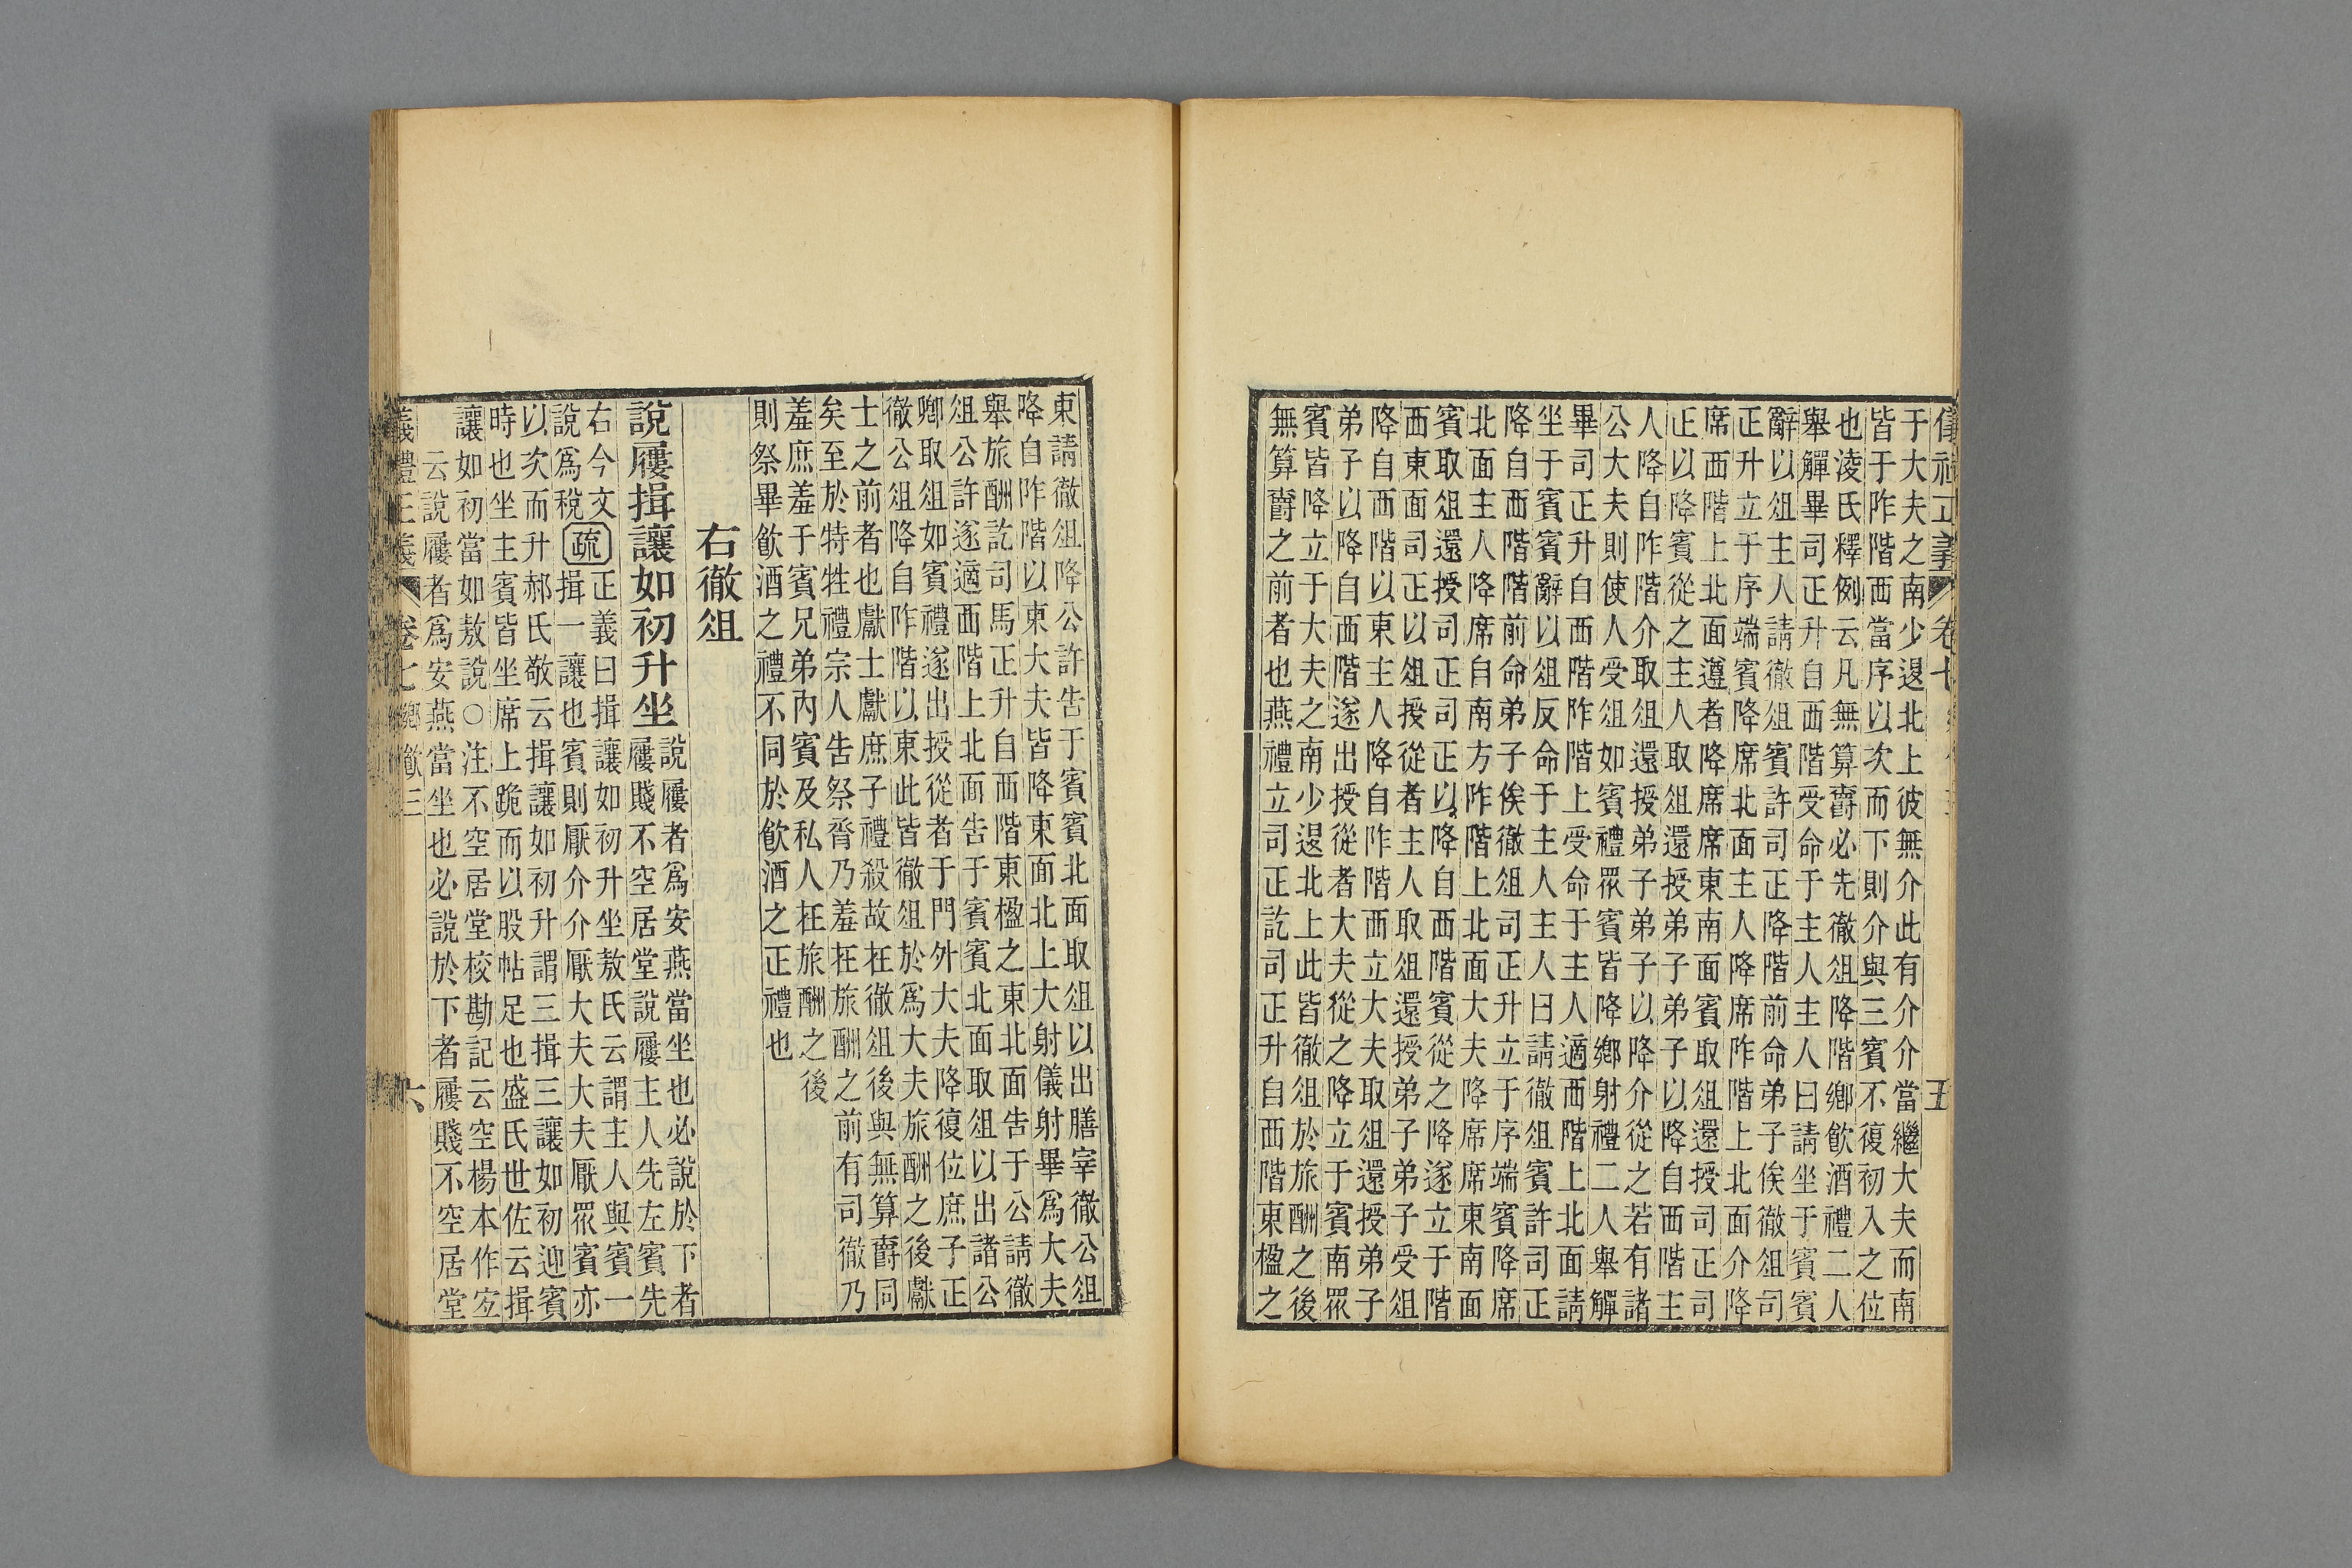 于大夫之南少退北上彼無介此有介介當繼大夫而南
皆于阼階西當序以次而下則介與三賓不復初入之位
也淩氏釋例云凡無算爵必先徹俎降階鄉飲酒禮二人
舉觶畢司正升自西階受命于主人主人曰請坐于賓賓
辭以俎主人請徹俎賓許司正降階前命弟子俟徹俎司
正升立于序端賓降席北面主人降席阼階上北面介降
席西階上北面遵者降席席東南面賓取俎還授司正司
正以降賓從之主人取俎還授弟子弟子以降自西階主
人降自阼階介取俎還授弟子弟子以降介從之若有諸
公大夫則使人受俎如賓禮眾賓皆降鄉射禮二人舉觶
畢司正升自西階阼階上受命于主人適西階上北面請
坐于賓賓辭以俎反命于主人主人曰請徹俎賓許司正
降自西階階前命弟子俟徹俎司正升立于序端賓降席
北面主人降席自南方阼階上北面大夫降席席東南面
賓取俎還授司正司正以降自西階賓從之降遂立于階
西東面司正以俎授從者主人取俎還授弟子弟子受俎
降自西階以東主人降自阼階西立大夫取俎還授弟子
弟子以降自西階遂出授從者大夫從之降立于賓南眾
賓皆降立于大夫之南少退北上此皆徹俎於旅酬之後
無算爵之前者也燕禮立司正訖司正升自西階東楹之
東請徹俎降公許告于賓賓北面取俎以出膳宰徹公俎
降自阼階以東大夫皆降東面北上大射儀射畢為大夫
舉旅酬訖司馬正升自西階東楹之東北面告于公請徹
俎公許遂適西階上北面告于賓賓北面取俎以出諸公
卿取俎如賓禮遂出授從者于門外大夫降復位庶子正
徹公俎降自阼階以東此皆徹俎於為大夫旅酬之後獻
士之前者也獻士獻庶子禮殺故在徹俎後與無算爵同
矣至於特牲禮宗人告祭脀乃羞在旅酬之前有司徹乃
羞庶羞于賓兄弟內賓及私人在旅酬之後
則祭畢飲酒之禮不同於飲酒之正禮也
右徹俎
說屨揖讓如初升坐說屨者為安燕當坐也必說於下者
屨賤不空居堂說屨主人先左賓先
右今文
說為稅疏正義曰揖讓如初升坐敖氏云謂主人與賓一
揖一讓也賓則厭介介厭大夫大夫厭眾賓亦
以次而升郝氏敬云揖讓如初升謂三揖三讓如初迎賓
時也坐主賓皆坐席上跪而以股帖足也盛氏世佐云揖
讓如初當如敖說○注不空居堂校勘記云空楊本作㝉
云說屨者為安燕當坐也必說於下者屨賤不空居堂